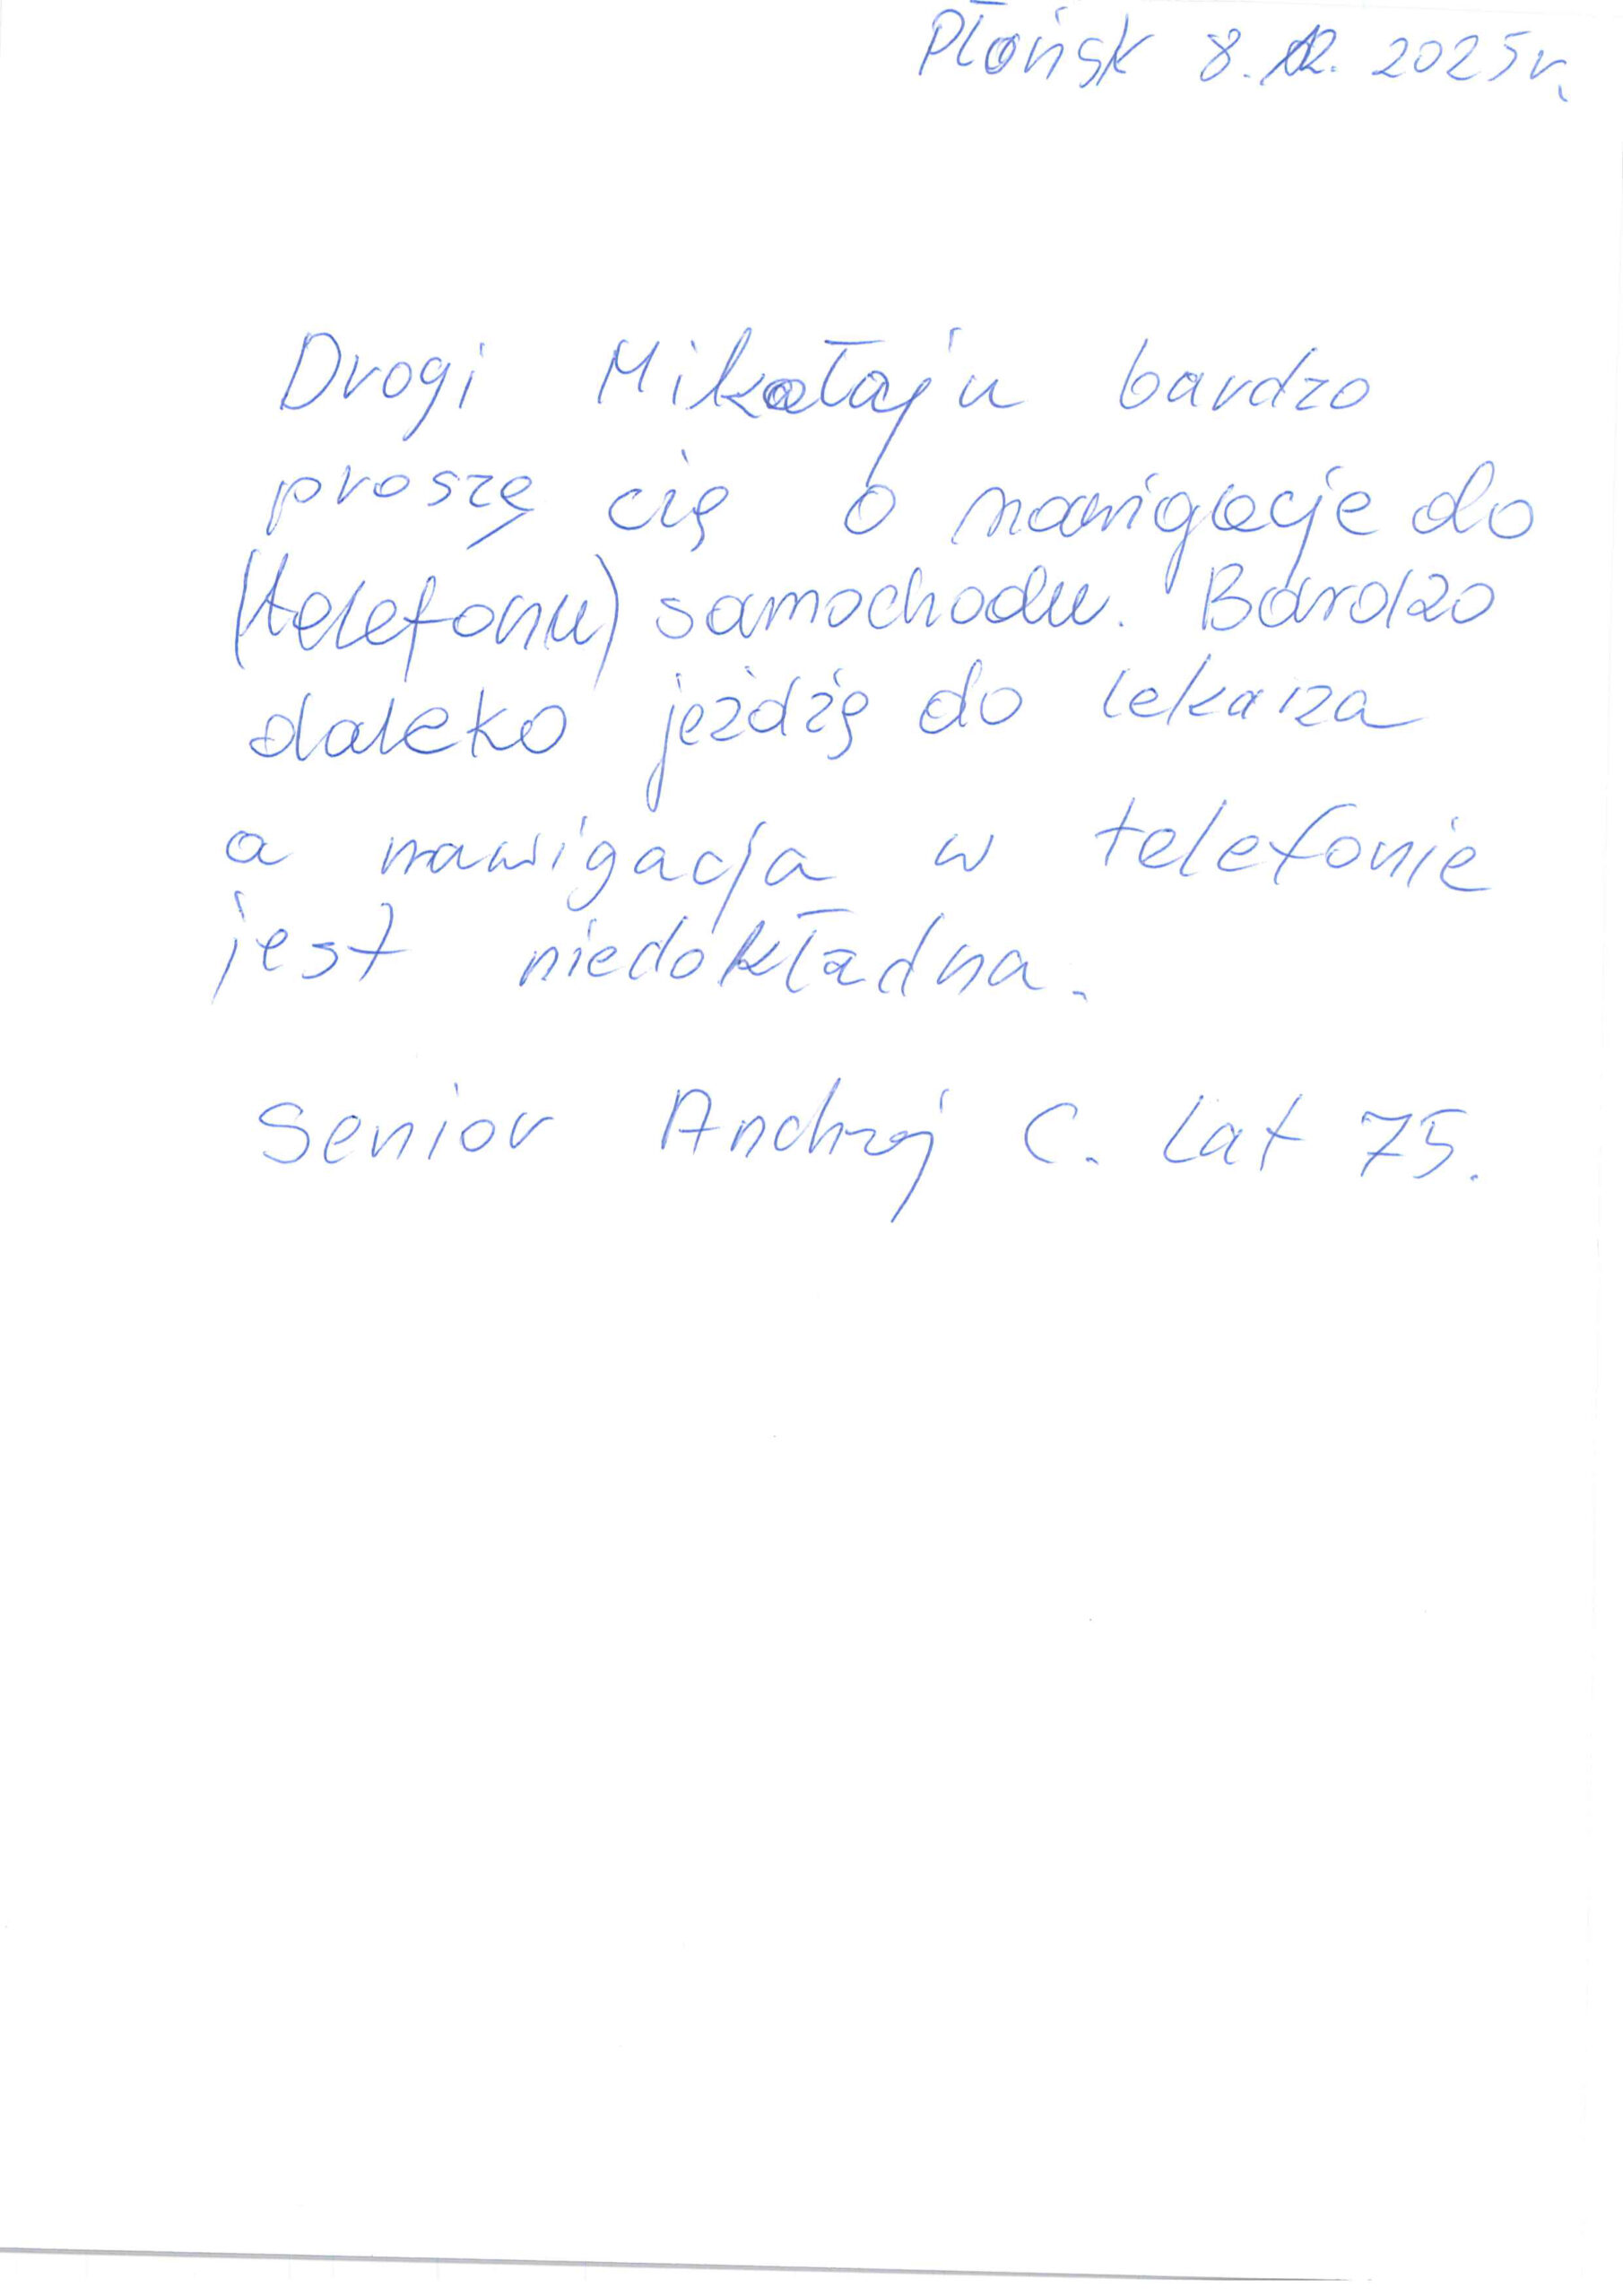 Płońsk 8.12.2025r.
Drogi Mikołaju bardzo
proszę cię o nawigacje do
(telefonu) samochodu. Bardzo
daleko jeżdżę do lekarza
a nawigacja w telefonie
jest niedokładna.
Senior Andrzej C. Lat 75.